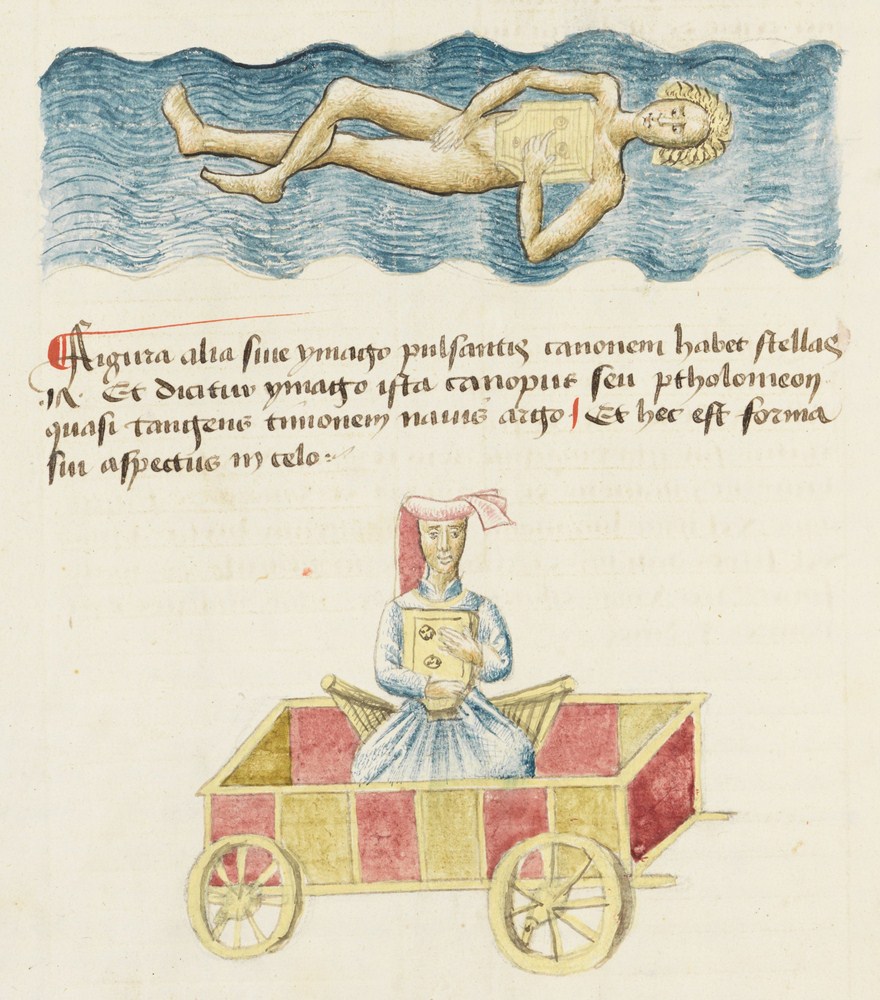 Figura alia siue ymago pulsantis canonem habet stellas
.IX. Et dicitur ymago ista canopus seu ptholomeon
quasi tangens timonem nauis argo Et hec est forma
sui aspectus in celo